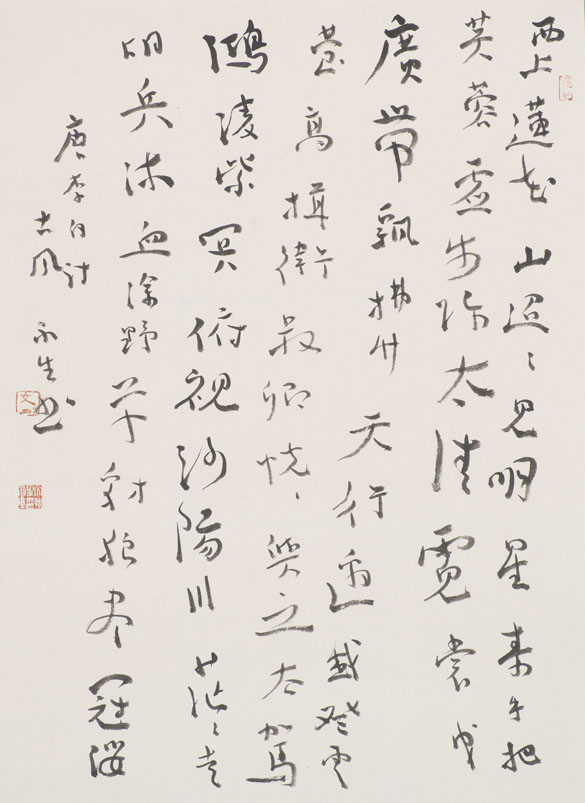 西上蓮花山迢々見明星素手把
芙蓉虛步躡太清霓裳曳
廣帶飄拂升天行邀我登雲
臺高揖衛叔卿恍々與之去駕
鴻淩紫冥俯視洛陽川茫々走
胡兵流血塗野草豺狼盡冠纓
唐李白詩
古風 生书